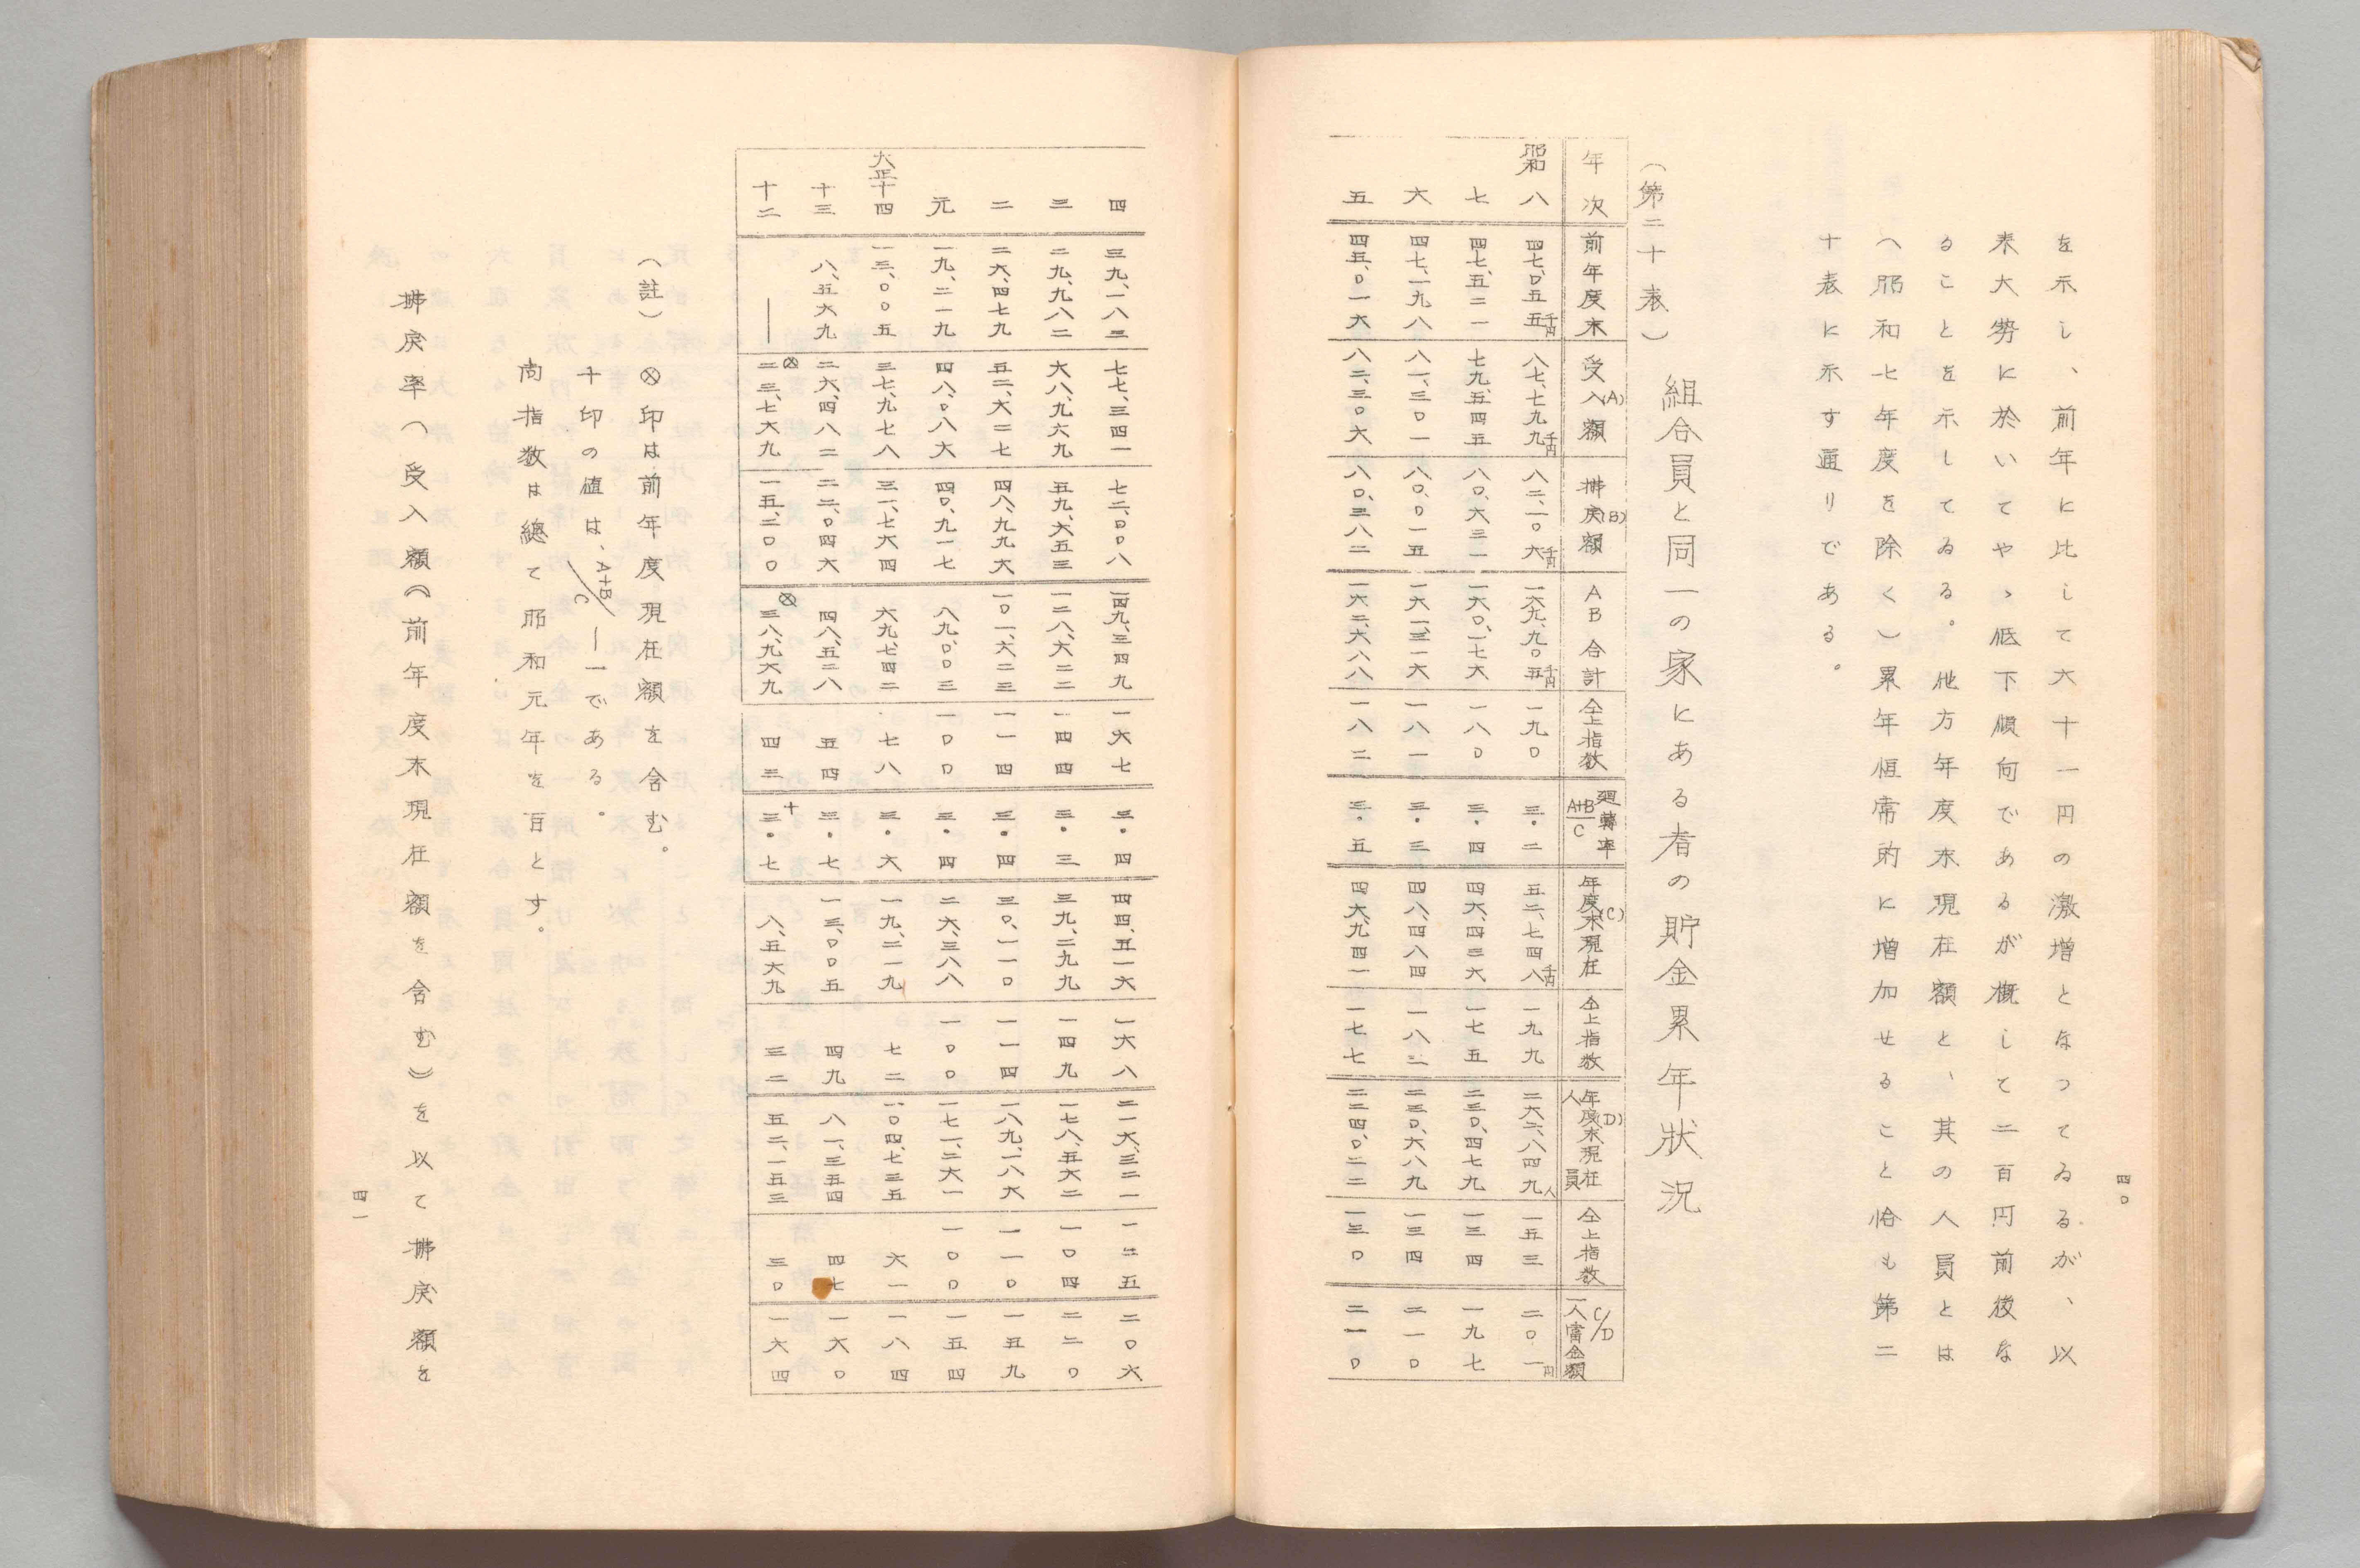 四〇
を示し、前年に比して六十一円の激増となつてゐるが、以
来大勢に於いてやゝ低下傾向であるが概して二百円前後な
ることを示してゐる。他方年度末現在額と、其の人員とは
(昭和七年度を除く)累年恒常的に増加せること恰も第二
十表に示す通りである。
(第二十表) 組合員と同一の家にある者の貯金累年狀況
年次 前年度末 受入額(A) 拂戻額(B) AB合計 仝上指数 廻轉率A+B/C 年度末現在(C) 仝上指数 年度末現在人員(D) 仝上指数 C/D一人當金額
昭和八 四七、〇五五千円 八七、七九九千円 八二、一〇六千円 一六九、九〇五千円 一九〇 三・二 五二、七四八千円 一九九 二六二、八四九人 一五三 二〇一円
七 四七、五二一 七九、五四五 八〇、六三一 一六〇、一七六 一八〇 三・四 四六、四三六 一七五 二三〇、四七九 一三四 一九七
六 四七、一九八 八一、三〇一 八〇、〇一五 一六一、三一六 一八一 三・三 四八、四八四 一八二 二三〇、六八九 一三四 二一〇
五 四五、〇一六 八二、三〇六 八〇、三八二 一六二、六八八 一八二 三・五 四六、九四一 一七七 二二四、〇二二 一三〇 二一〇
四 三九、一八三 七七、三四一 七二、〇〇八 一四九、三四九 一六七 三・四 四四、五一六 一六八 二一六、三二一 一二五 二〇六
三 二九、九八二 六八、九六九 五九、六五三 一二八、六二二 一四四 三・三 三九、二九九 一四九 一七八、五六二 一〇四 二二〇
二 二六、四七九 五二、六二七 四八、九九六 一〇一、六二三 一一四 三・四 三〇、一一〇 一一四 一八九、一八六 一一〇 一五九
元 一九、二一九 四八、〇八六 四〇、九一七 八九、〇〇三 一〇〇 三・四 二六、三八八 一〇〇 一七一、二六一 一〇〇 一五四
大正十四 一三、〇〇五 三七、九七八 三一、七六四 六九、七四二 七八 三・六 一九、二一九 七二 一〇四、七三五 六一 一八四
十三 八、五六九 二六、四八二 二二、〇四六 四八、五二八 五四 三・七 一三、〇〇五 四九 八一、三五四 四七 一六〇
十二 ― ⊗二三、七六九 一五、二〇〇 ⊗三八、九六九 四三 十三・七 八、五六九 三二 五二、一五三 三〇 一六四
(註) ⊗印は前年度現在額を含む。
十印の値は、A+B/C―一である。
尚指数は總て昭和元年を百とす。
拂戻率(受入額《前年度末現在額を含む》を以て拂戻額を
四一